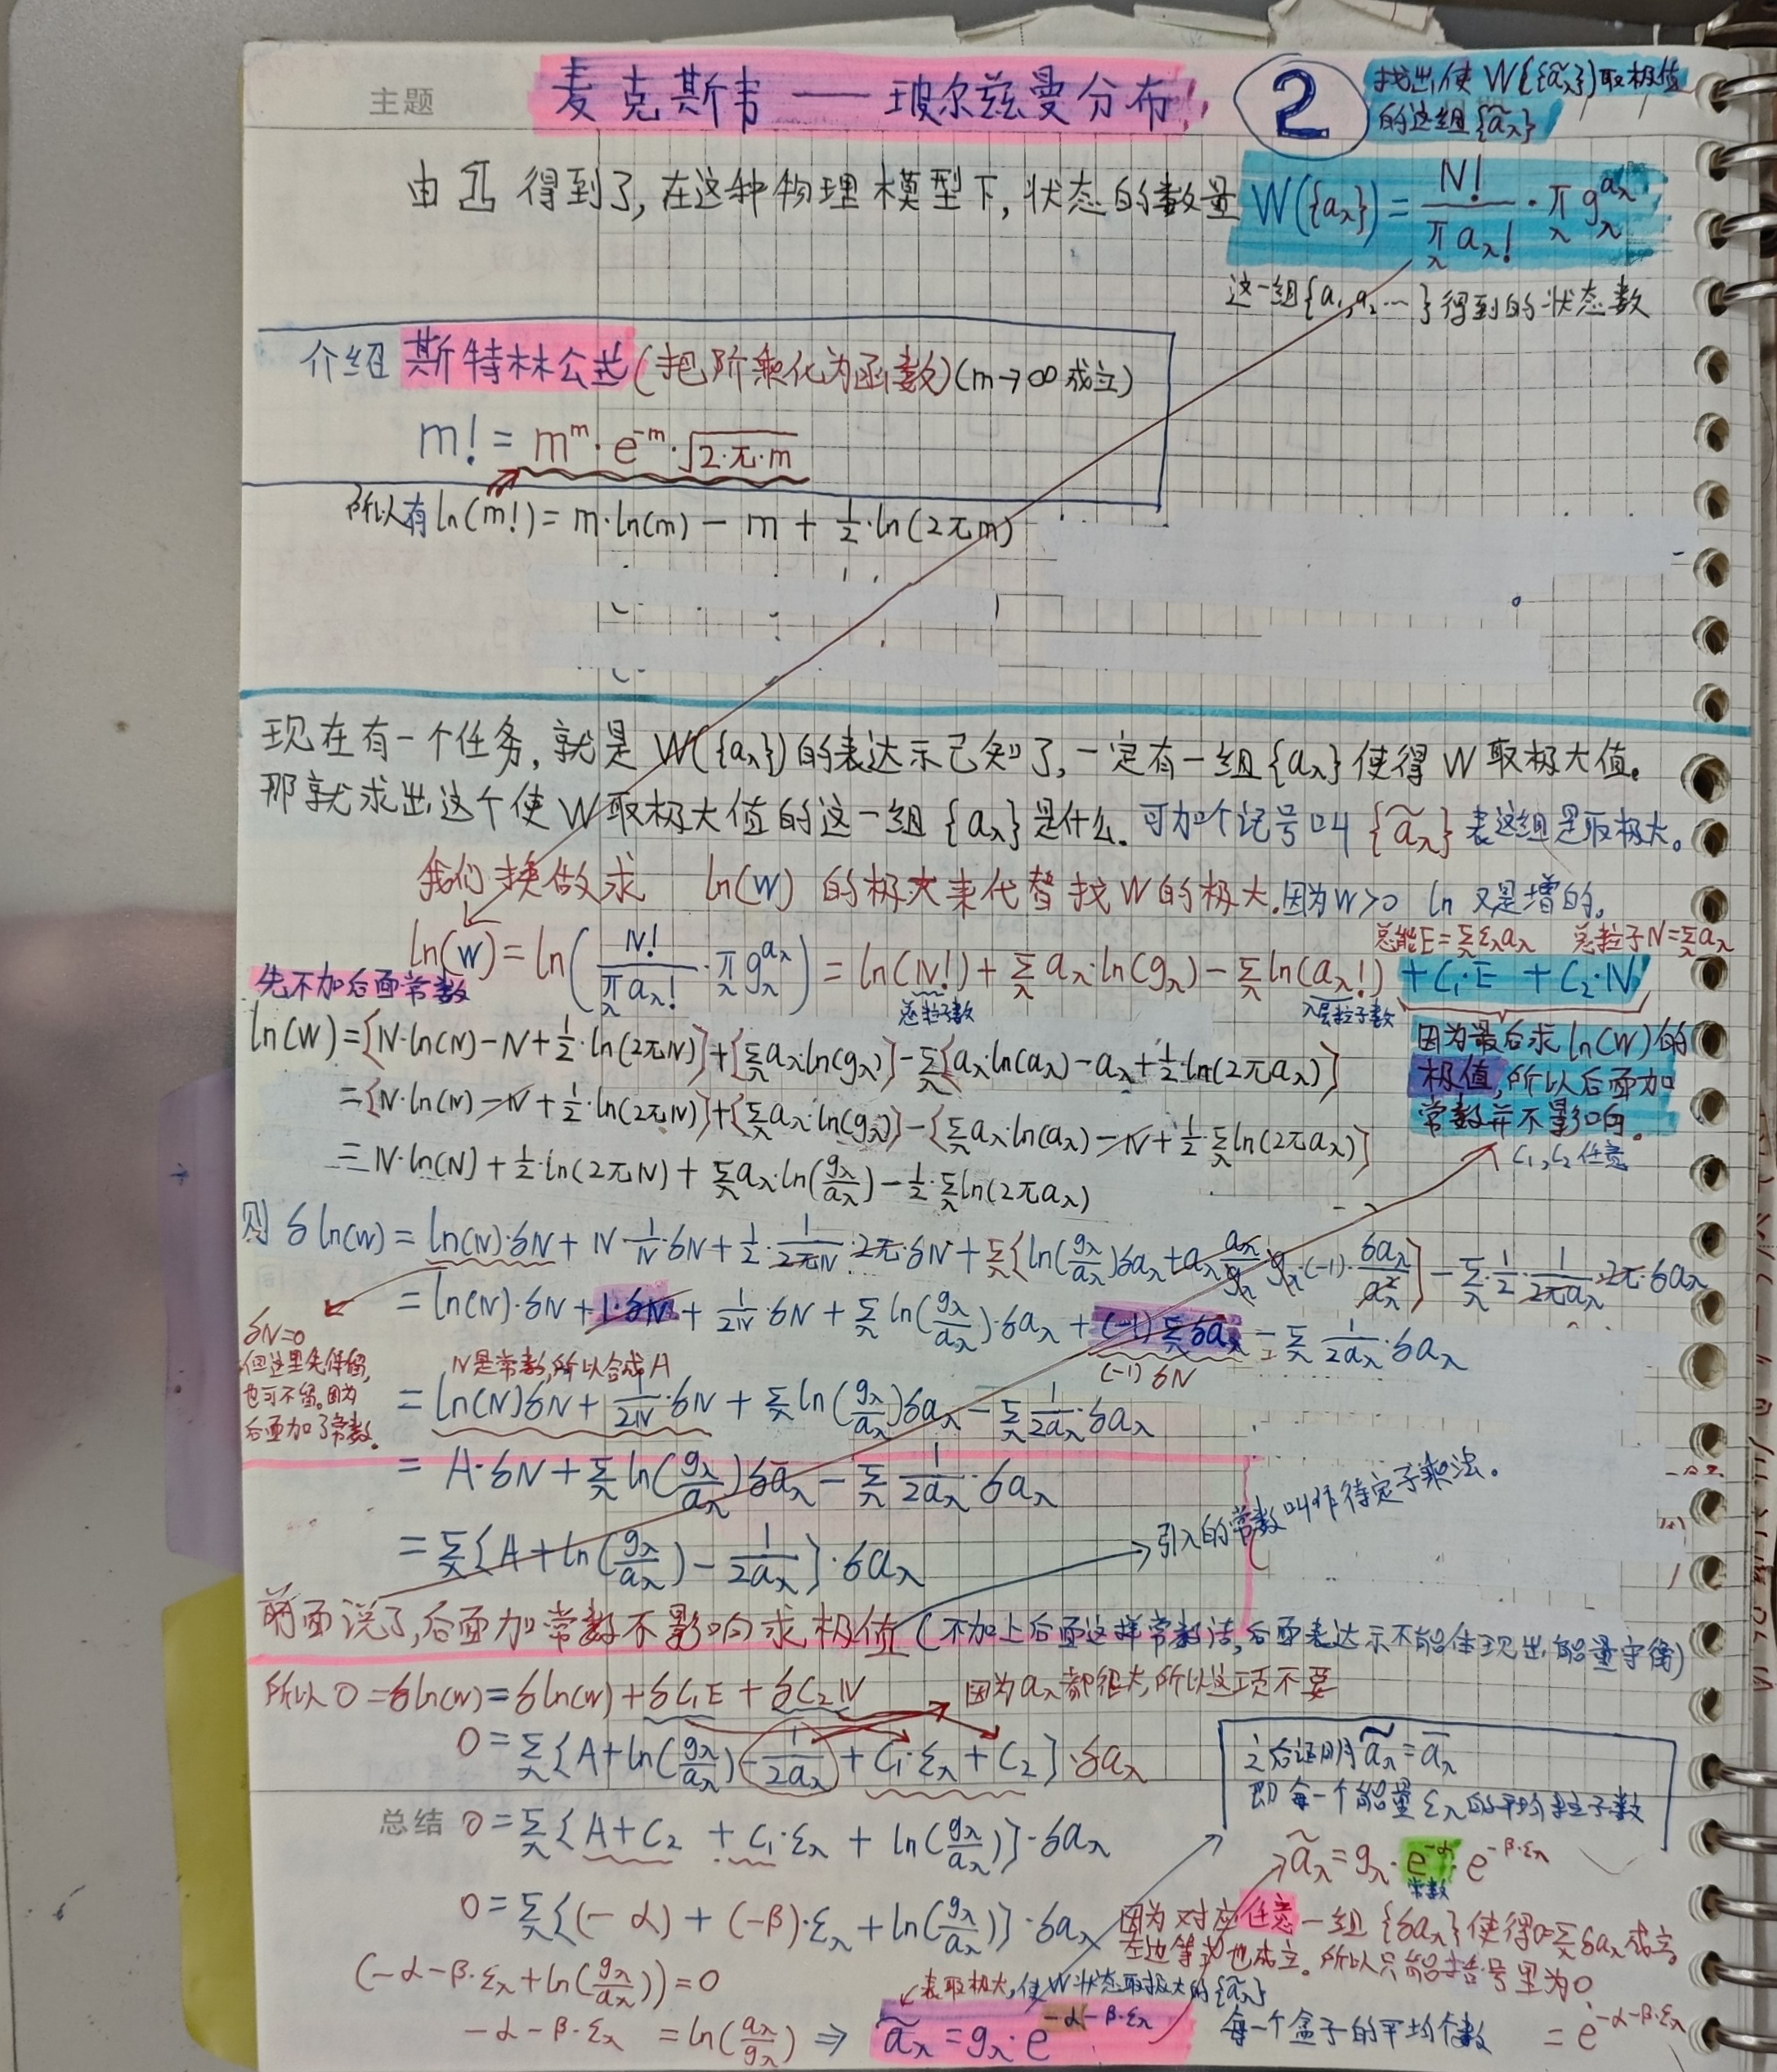 主题 麦克斯韦——玻尔兹曼分布 ② 找出使W({ãλ})取极值
的这组{ãλ}
由①得到了,在这种物理模型下,状态的数量 W({aλ}) = N!/(π_λ aλ!) · π_λ gλ^aλ
这一组{a₁,a₂…}得到的状态数
介绍 斯特林公式(把阶乘化为函数)(m→∞成立)
m! = m^m · e^-m · √(2·π·m)
所以有 ln(m!) = m·ln(m) - m + 1/2·ln(2πm)
现在有一个任务,就是W({aλ})的表达示已知了,一定有一组{aλ}使得W取极大值。
那就求出这个使W取极大值的这一组{aλ}是什么.可加个记号叫{ãλ}表这组是取极大。
我们换做求 ln(W) 的极大来代替找W的极大.因为W>0 ln又是增的。
总能E=Σ_λ ελaλ 总粒子N=Σ_λ aλ
ln(W) = ln(N!/(π_λ aλ!) · π_λ gλ^aλ) = ln(N!) + Σ_λ aλ·ln(gλ) - Σ_λ ln(aλ!) + C₁·E + C₂·N
先不加后面常数
总粒子数
λ层粒子数
ln(W) = {N·ln(N) - N + 1/2·ln(2πN)} + {Σ_λ aλ·ln(gλ)} - Σ_λ{aλ·ln(aλ) - aλ + 1/2·ln(2πaλ)}
= {N·ln(N) - N + 1/2·ln(2πN)} + {Σ_λ aλ·ln(gλ)} - {Σ_λ aλ·ln(aλ) - N + 1/2·Σ_λ ln(2πaλ)}
= N·ln(N) + 1/2·ln(2πN) + Σ_λ aλ·ln(gλ/aλ) - 1/2·Σ_λ ln(2πaλ)
因为最后求ln(W)的
极值,所以后面加
常数并不影响。
C₁,C₂任意
则 δln(W) = ln(N)·δN + N·1/N·δN + 1/2·1/(2πN)·2π·δN + Σ_λ{ln(gλ/aλ)δaλ + aλ·aλ/gλ·gλ·(-1)·δaλ/aλ²} - Σ_λ·1/2·1/(2πaλ)·2π·δaλ
= ln(N)·δN + 1·δN + 1/2N·δN + Σ_λ ln(gλ/aλ)·δaλ + (-1)Σ_λ δaλ - Σ_λ 1/2aλ·δaλ
(-1)δN
δN=0
但这里先保留,
也可不留。因为
后面加了常数。
N是常数,所以合成A
= ln(N)δN + 1/2N·δN + Σ_λ ln(gλ/aλ)δaλ - Σ_λ 1/2aλ·δaλ
= A·δN + Σ_λ ln(gλ/aλ)δaλ - Σ_λ 1/2aλ·δaλ
= Σ_λ{A + ln(gλ/aλ) - 1/2aλ}·δaλ
引入的常数叫作待定子乘法.
前面说了,后面加常数不影响求极值(不加上后面这样常数话,后面表达示不能体现出能量守衡)
所以 0 = δln(W) = δln(W) + δC₁E + δC₂N
因为aλ都很大,所以这项不要
0 = Σ_λ{A + ln(gλ/aλ) - 1/2aλ + C₁·ελ + C₂}·δaλ
之后证明ãλ = āλ
即每一个能量ελ的平均粒子数
总结 0 = Σ_λ{A + C₂ + C₁·ελ + ln(gλ/aλ)}·δaλ
ãλ = gλ·e^-α·e^-β·ελ
常数
0 = Σ_λ{(-α) + (-β)·ελ + ln(gλ/aλ)}·δaλ
因为对应任意一组{δaλ}使得0=Σ_λ δaλ成立,
左边等式也成立。所以只能括号里为0
(-α-β·ελ + ln(gλ/aλ)) = 0
表取极大,使W状态取极大的{ãλ}
-α-β·ελ = ln(aλ/gλ) ⇒ ãλ = gλ·e^-α-β·ελ
每一个盒子的平均个数 = e^-α-β·ελ